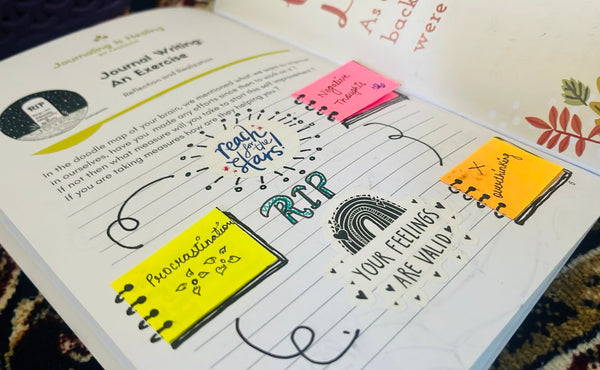 Journaling is Healing
Journal Writing:
An Exercise
Reflection and Realization
RIP
In the doodle map of your brain, we mentioned what we want to improve
in ourselves, have you made any efforts since then to work on it?
If not then what measure will you take to start this self improvement?
If you are taking measures how are they helping you?
As a
back
were
Negative
Thoughts
reach
for the
stars!
RIP
X
overthinking
YOUR FEELINGS
ARE VALID
Procrastination